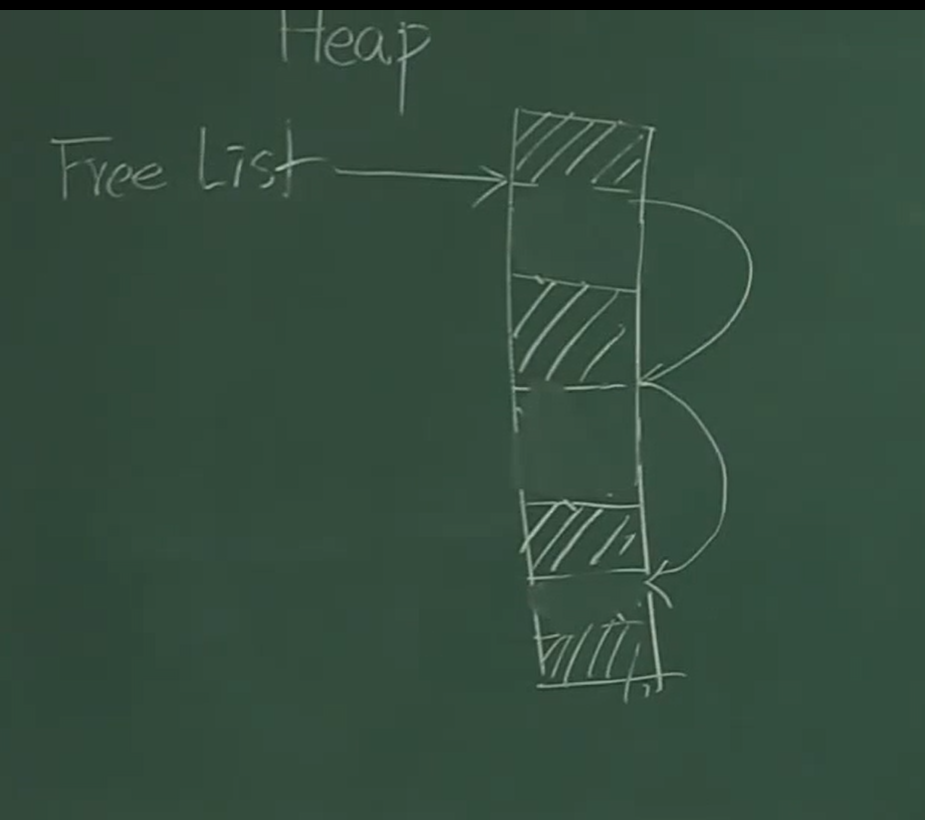 Heap
Free List